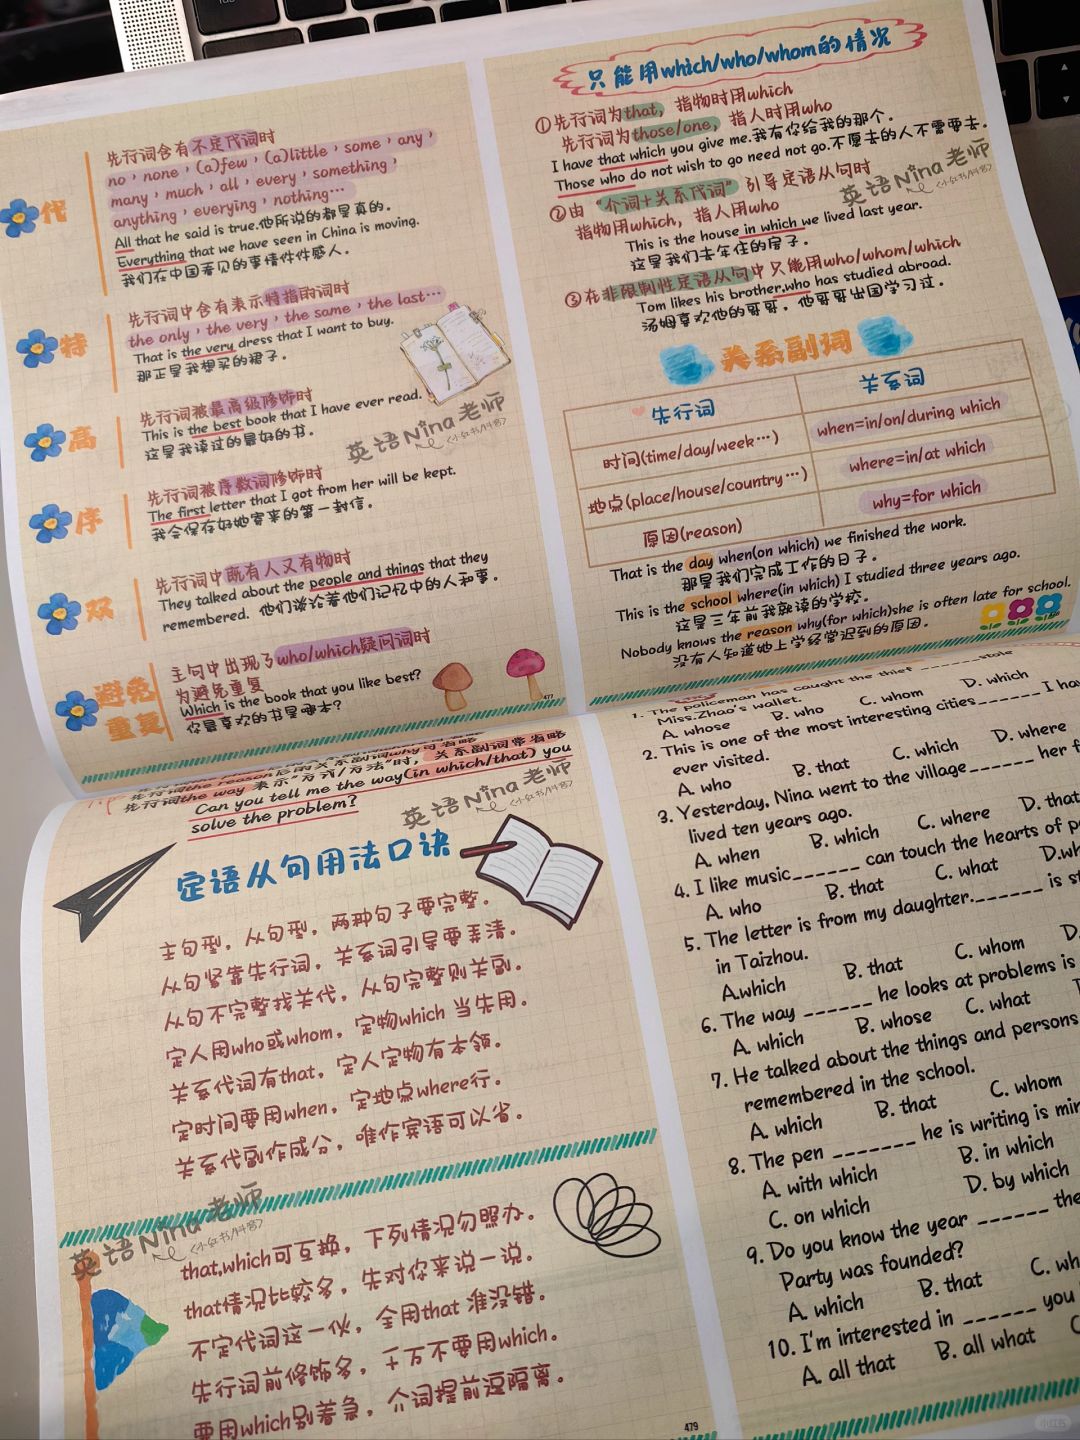 代
先行词含有不定代词时
no，none，(a)few，(a)little，some，any，
many，much，all，every，something，
anything，everying，nothing…
All that he said is true.他所说的都是真的。
Everything that we have seen in China is moving.
我们在中国看见的事情件件感人。
特
先行词中含有表示特指的词时
the only，the very，the same，the last…
That is the very dress that I want to buy.
那正是我想买的裙子。
高
先行词被最高级修饰时
This is the best book that I have ever read.
这是我读过的最好的书。
英语Nina老师
序
先行词被序数词修饰时
The first letter that I got from her will be kept.
我会保存好她寄来的第一封信。
双
先行词中既有人又有物时
They talked about the people and things that they
remembered. 他们谈论着他们记忆中的人和事。
避免
重复
主句中出现了who/which疑问词时
为避免重复
Which is the book that you like best?
你最喜欢的书是哪本?
477
只能用which/who/whom的情况
①先行词为that，指物时用which
先行词为those/one，指人时用who
I have that which you give me.我有你给我的那个.
Those who do not wish to go need not go.不愿去的人不需要去.
英语Nina老师
②由“介词+关系代词”引导定语从句时
指物用which，指人用who
This is the house in which we lived last year.
这是我们去年住的房子.
③在非限制性定语从句中只能用who/whom/which
Tom likes his brother,who has studied abroad.
汤姆喜欢他的哥哥，他哥哥出国学习过.
关系副词
先行词 关系词
时间(time/day/week…) when=in/on/during which
地点(place/house/country…) where=in/at which
原因(reason) why=for which
That is the day when(on which) we finished the work.
那是我们完成工作的日子.
This is the school where(in which) I studied three years ago.
这是三年前我就读的学校.
Nobody knows the reason why(for which)she is often late for school.
没有人知道她上学经常迟到的原因.
先行词the way 表示“方式/方法”时，关系副词常省略
Can you tell me the way(in which/that) you
solve the problem?
英语Nina老师
定语从句用法口诀
主句型，从句型，两种句子要完整。
从句紧靠先行词，关系词引导要弄清。
从句不完整找关代，从句完整则关副。
定人用who或whom，定物which 当先用。
关系代词有that，定人定物有本领。
定时间要用when，定地点where行。
关系代副作成分，唯作宾语可以省。
英语Nina老师
that,which可互换，下列情况勿照办。
that情况比较多，先对你来说一说。
不定代词这一伙，全用that 准没错。
先行词前修饰多，千万不要用which。
要用which别着急，介词提前逗隔离。
479
1. The policeman has caught the thief ______stole
Miss.Zhao's wallet.
A. whose B. who C. whom D. which
2. This is one of the most interesting cities______ I have
ever visited.
A. who B. that C. which D. where
3. Yesterday, Nina went to the village______ her
lived ten years ago.
A. when B. which C. where D. that
4. I like music______ can touch the hearts of
A. who B. that C. what
5. The letter is from my daughter.______ is
in Taizhou.
A.which B. that C. whom D.
6. The way ______ he looks at problems is
A. which B. whose C. what
7. He talked about the things and persons
remembered in the school.
A. which B. that C. whom
8. The pen ______ he is writing is
A. with which B. in which
C. on which D. by which
9. Do you know the year ______ the
Party was founded?
A. which B. that C.
10. I'm interested in ______ you
A. all that B. all what